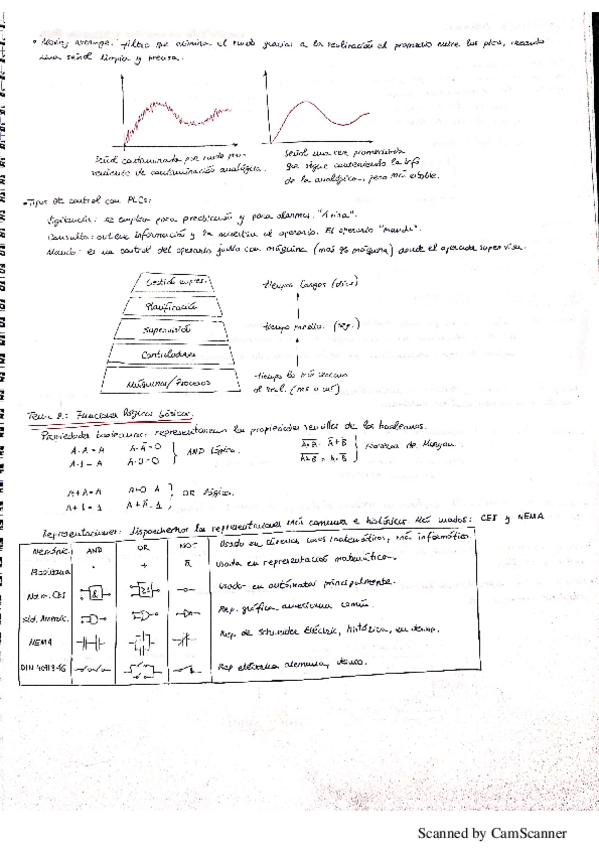 • Moving average: filtro que elimina el ruido gracias a la realización del promedio entre los ptos, creando
una señal limpia y precisa.
Señal contaminada por ruido pro-
veniente de contaminación analógica.
Señal una vez promediada
que sigue conteniendo la info
de la analógica, pero más estable.
• Tipos de control con PLCs:
Vigilancia: se emplea para predicción y para alarmas. "Avisa".
Consulta: obtiene información y la muestra al operario. El operario "manda".
Mando: es un control del operario junto con máquina (más % máquina) donde el operador supervisa.
Gestión empres.
Planificación
Supervisión
Controladores
Máquinas/Procesos
tiempos largos (días)
tiempo medio. (seg.)
tiempo lo más cercano
al real. (ms o us)
Tema 2: Funciones lógicas básicas.
Propiedades booleanas: las propiedades sencillas de los booleanos.
A·A = A A·Ā=0
A·1=A A·0=0
AND lógica.
Teorema de Morgan.
A+A=A A+0 A
A+1=1 A+Ā.1
OR lógica.
Representaciones: disponemos las representaciones más comunes e históricas. Más usados: CEI y NEMA
AND OR NOT
· + Ā Usada en representación matemática.
Norm. CEI & ≥1 Usado en autómatas principalmente.
Std. Americ. Rep. gráfica americana común.
NEMA Rep. de Schneider Electric, histórica, en
DIN 40713-16 Rep eléctrica alemana,
Scanned by CamScanner